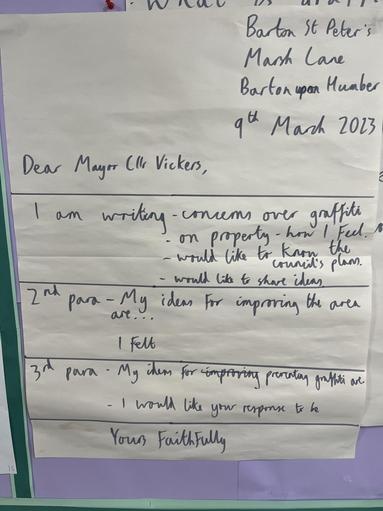 What is
Barton St Peter's
Marsh Lane
Barton upon Humber
9th March 2023
Dear Mayor Cllr Vickers,
I am writing - concerns over graffiti
- on property - how I feel.
- would like to know the
council's plans.
- would like to share ideas
2nd para - My ideas for improving the area
are...
I felt
3rd para - My ideas for improving preventing graffiti are
- I would like your response to be
Yours Faithfully